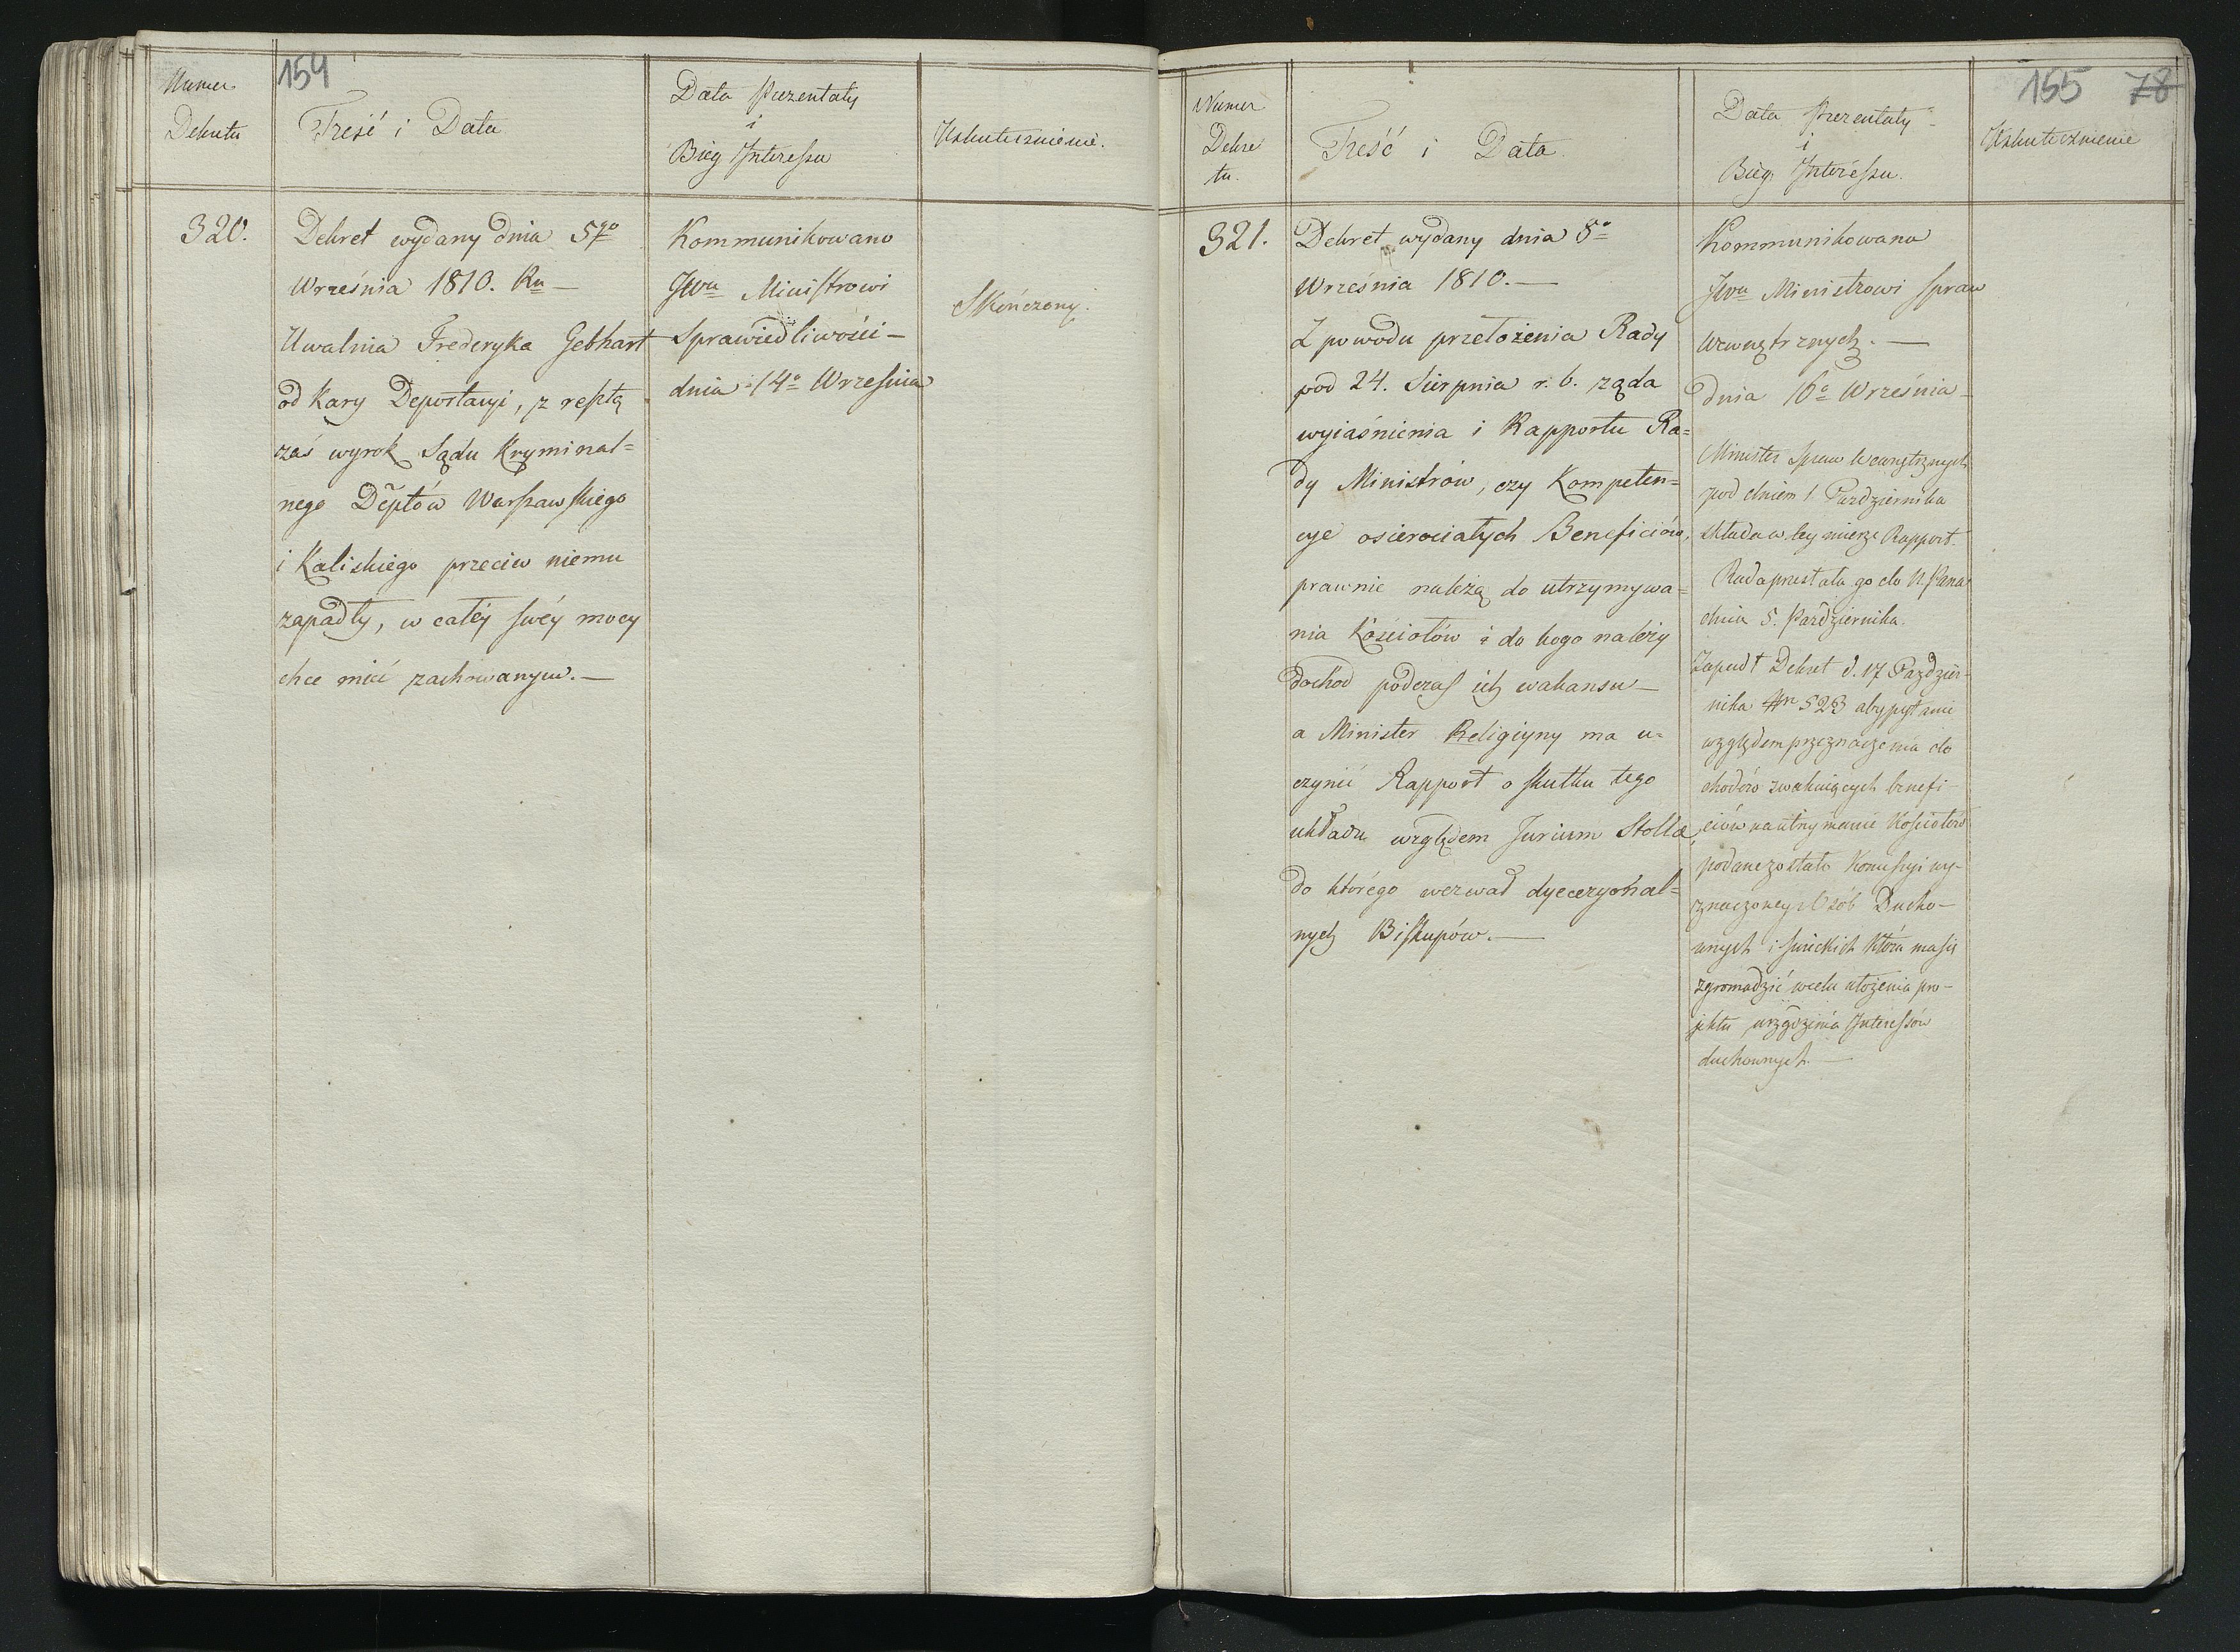 154
Numer
Dekretu
Treść i Data
Data Prezentaty
i
Bieg Interessu
Uskutecznienie.
320.
Dekret wydany dnia 5go
Września 1810. Ru —
Uwalnia Frederyka Gebhart
od Kary Deportacyi, z resztą
zaś wyrok Sądu Kryminal=
nego Deptów Warszawskiego
i Kaliskiego przeciw niemu
zapadły, w całéy swéy mocy
chce mieć zachowanym. —
Kommunikowano
JWu Ministrowi
Sprawiedliwości —
dnia 14o Września
Skończony.
155 78
Numer
Dekre
tu.
Treść i Data.
Data Prezentaty
i
Bieg Interessu.
Uskutecznienie
321.
Dekret wydany dnia 8o
Września 1810. —
Z powodu przełożenia Rady
pod 24. Sierpnia r. b. rząda
wyiaśnienia i Rapportu Ra=
dy Ministrów, czy Kompeten=
cye osierociałych Beneficiów,
prawnie należą do utrzymywa=
nia Kościołów i do kogo należy
dochod podczas ich wakansu —
a Minister Religiyny ma u=
czynić Rapport o skutku tego
układu względem Jurium Stollæ,
do którego wezwał dyecezyonal=
nych Biskupów. —
Kommunikowano
JWu Ministrowi Spraw
Wewnętrznych. —
dnia 16o Września —
Minister Spraw Wewnętrznych
pod dniem 1 Października
składa w tey mierze Rapport.
Rada przesłała go do N. Pana
dnia 5. Października.
Zapadł Dekret d. 17 Paździer-
nika Nr 523 aby pytanie
względem przeznaczenia do
chodów zwakuiących benefi-
ciów na utrzymanie Kościołów
podane zostało Komissyi wy-
znaczoney z Osób Ducho-
wnych i świeckich która ma się
zgromadzić w celu ułożenia pro-
jektu urządzenia Interessów
duchownych. —